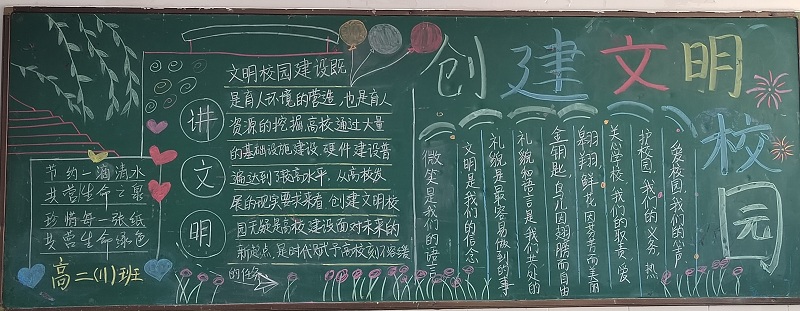 创建文明
校园
讲文明
文明校园建设既
是育人环境的营造,也是育人
资源的挖掘,高校通过大量
的基础设施建设,硬件建设普
遍达到了较高水平,从高校发
展的现实要求来看,创建文明校
园无疑是高校建设面对未来的
新起点,是时代赋予高校刻不容缓
的任务
节约一滴清水
共营生命之泉
珍惜每一张纸
共营生命绿色
高二(11)班
爱校园,我们的心声
护校园,我们的义务,热
关心学校,我们的职责,爱
翱翔,鲜花因芬芳而美丽
金钥匙,鸟儿因翅膀而自由
礼貌和语言是我们共处的
礼貌是最容易做到的事
文明是我们的信念
微笑是我们的语言